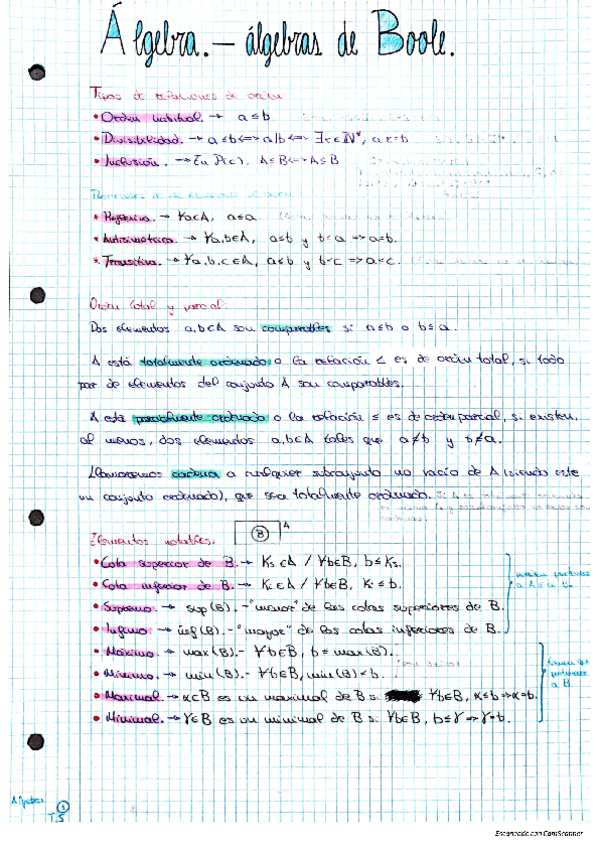 Álgebra.- álgebras de Boole.
Tipos de relaciones de orden
• Orden habitual → a ≤ b
• Divisibilidad. → a ≤ b <=> a/b <=> ∃r∈N*, a·r=b
• Inclusión. → En P(C), A ≤ B <=> A ⊆ B
• Reflexiva. → ∀a∈A, a≤a.
• Antisimétrica. → ∀a,b∈A, a≤b y b≤a => a=b.
• Transitiva. → ∀a,b,c∈A, a≤b y b≤c => a≤c.
Orden total y parcial:
Dos elementos a,b∈A son comparables si a≤b o b≤a.
A está totalmente ordenado o la relación ≤ es de orden total, si todo
par de elementos del conjunto A son comparables.
A está parcialmente ordenado o la relación ≤ es de orden parcial, si existen,
al menos, dos elementos a,b∈A tales que a≰b y b≰a.
Llamaremos cadena a cualquier subconjunto no vacío de A (siendo este
un conjunto ordenado), que sea totalmente ordenado.
Elementos notables. B A
• Cota superior de B. → Ks∈A / ∀b∈B, b≤Ks.
• Cota inferior de B. → Ki∈A / ∀b∈B, Ki≤b.
• Supremo. → sup(B).- "menor" de las cotas superiores de B.
• Ínfimo. → inf(B).- "mayor" de las cotas inferiores de B.
• Máximo. → max(B).- ∀b∈B, b≤max(B).
• Mínimo. → min(B).- ∀b∈B, min(B)≤b.
• Maximal. → α∈B es un maximal de B si ∀b∈B, α≤b => α=b.
• Minimal. → γ∈B es un minimal de B si ∀b∈B, b≤γ => γ=b.
a B.
Álgebra
1
T5
Escaneado con CamScanner